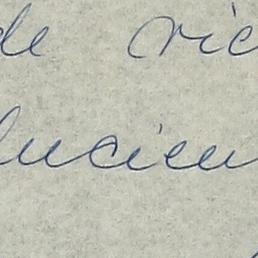 de ric
lucieu